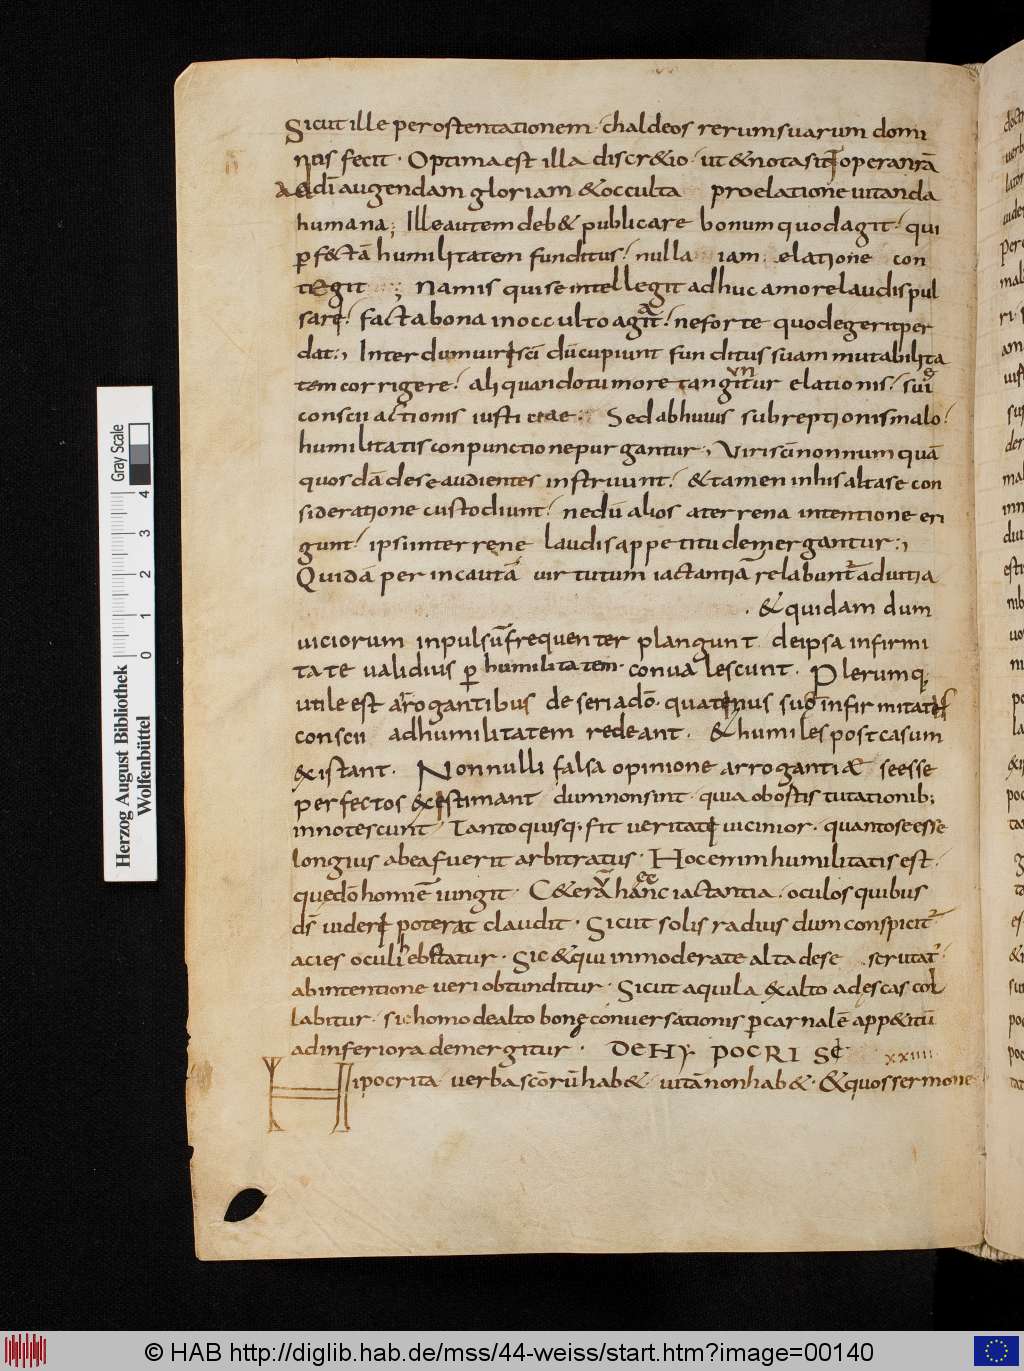 Sicut ille per ostentationem chaldeos rerum suarum domi
nus fecit · Optima est illa discr&io · ut & nota sit operanrā
ad dī augendam gloriam & occulta pro elatione uitanda
humana; Ille autem deb& publicare bonum quod agit · qui
p f&ctā humilitatem funditus · nulla iam elatione con
tegit ; Nam is qui se intellegit adhuc amore laudis pul
sare · facta bona in occulto agat · ne forte quod egerit per
dat ·, Interdum uiri sc̄i dū cupiunt funditus suam mutabilita
tem corrigere · aliquando tumore tanguntur elationis · sue
conscii actionis iustitiae · Sed ab huius subreptionis malo ·
humilitatis conpunctione purgantur ·, Viri sc̄i non numquā
quos dā de se audientes instruunt · & tamen in his alta se con
sideratione custodiunt · ne dū alios a terrena intentione eri
gunt · ipsi in terrene laudis appetitu demergantur ·,
Quidā per incautā uirtutum iactantiā relabunt̄ ad uitia
· & quidam dum
uiciorum inpulsū frequenter plangunt de ipsa infirmi
tate ualidius p humilitatem · conualescunt · Plerumq;
utile est arrogantibus deseri a dō · quatenus suę infirmitatis
conscii ad humilitatem redeant · & humiles post casum
existant · Nonnulli falsa opinione arrogantiæ se esse
perfectos existimant dum non sint · quia obortis tutationib;
innotescunt Tanto quisq; fit ueritati uicinior · quanto se esse
longius ab ea fuerit arbitratus · Hoc enim humilitatis est ·
que dō homine iungit · C&erā hanc iactantia · oculos quibus
dm̄ uideri poterat claudit · Sicut solis radius dum conspicit̄
acies oculi ebetatur · Sic & qui inmoderate alta de se scrutat̄ ·
ab intentione ueri obtunditur · Sicut aquila ex alto ad escas col
labitur · sic homo de alto bonę conuersationis p carnalē app&itū
ad inferiora demergitur · DE HYPOCRISI xxiiii
Hipocrita uerba sc̄orū hab& uitā non hab& · & quos sermone
Herzog August Bibliothek
Wolfenbüttel
0 1 2 3 4
Gray Scale
© HAB http://diglib.hab.de/mss/44-weiss/start.htm?image=00140